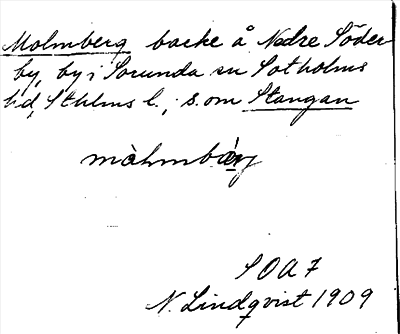 Malmberg backe å Nedre Söder-
by, by i Sorunda sn Sotholms
hd, Sthlms l.; s. om Stangan
màlmbæ̀rj
SOA 7
N. Lindqvist 1909